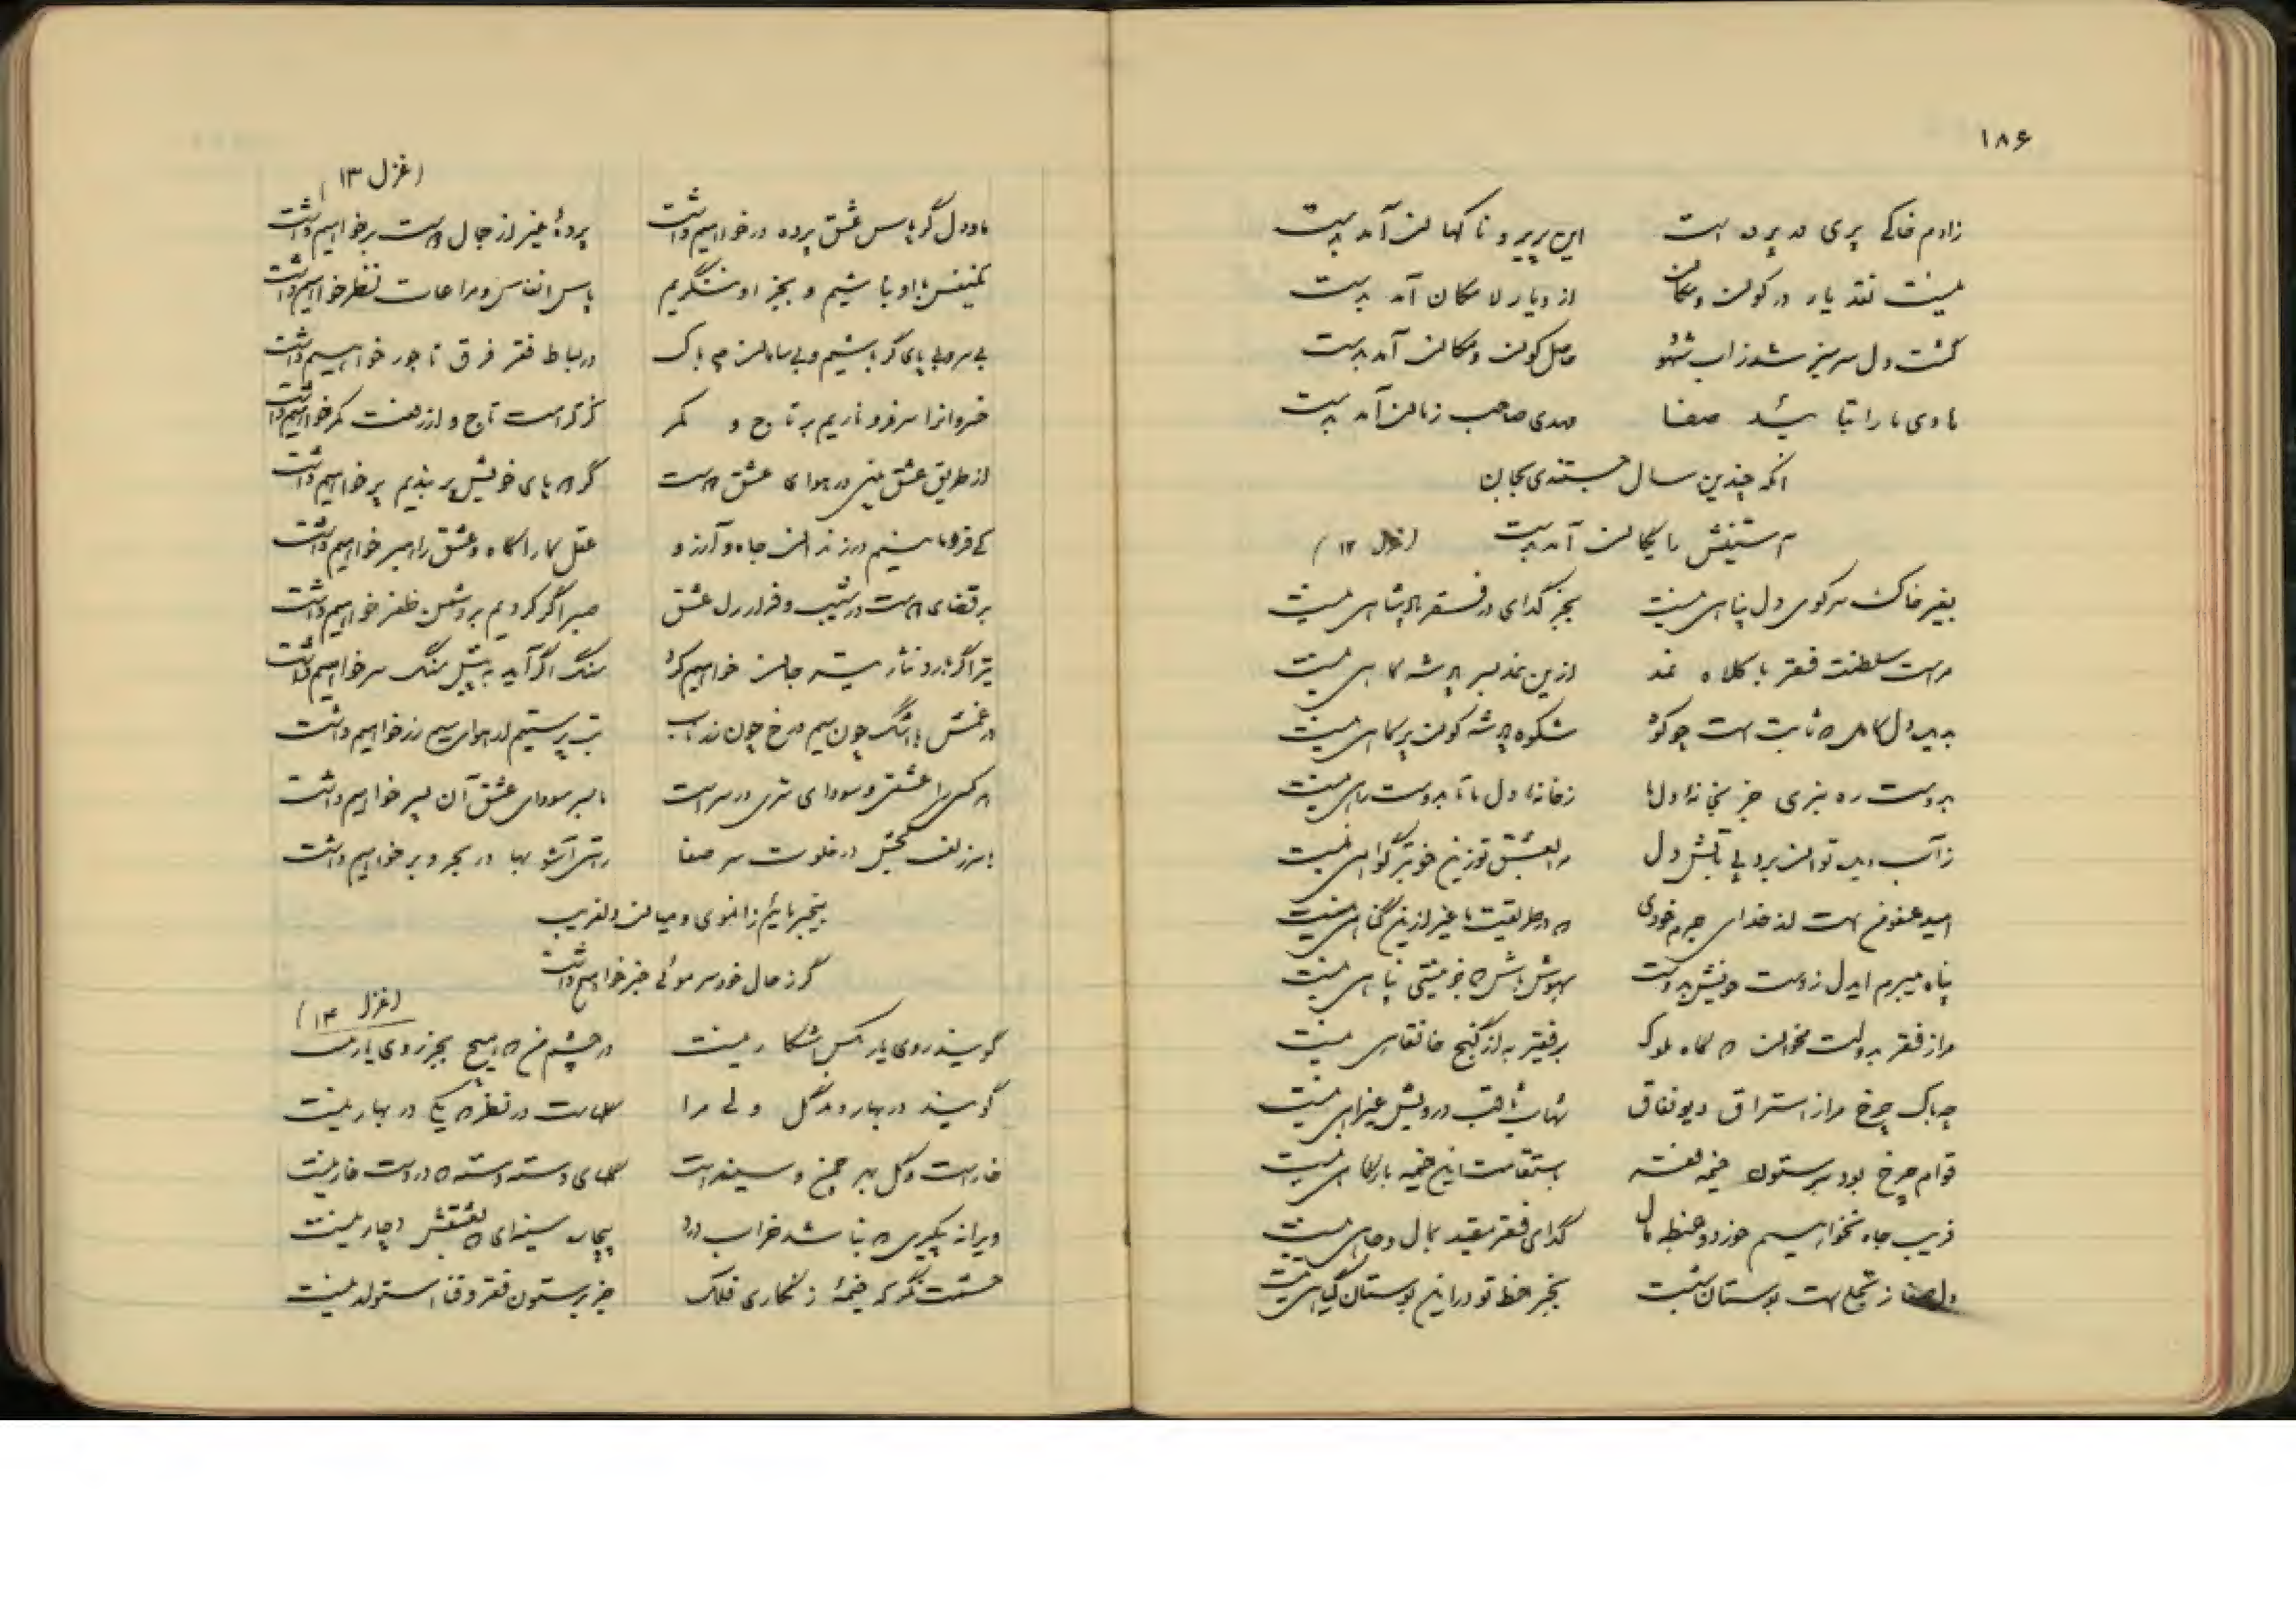 ۱۸۶
زادم خاکی پری پرید است این پریرو ناگهان آمد بدست
نیست نقد یار در کون و مکان از دیار لامکان آمد بدست
کشت دل سرسبز شد زاب شهود حاصل کون و مکان آمد بدست
هادی ما را بتأیید صفا مهدی صاحب زمان آمد بدست
انکه چندین سال جستندی بجان
آستینش رایگان آمد بدست (غزل ۱۲)
بغیر خاک سر کوی دل پناهی نیست بجز گدای در فقر پادشاهی نیست
مراست سلطنت فقر با کلاه نمد ازین نمد بسر پادشه کلاهی نیست
شکوه پادشه کون بر گیاهی نیست
بدوست ره نبری جز بخانه دلها زخانه دل ما تا بدوست راهی نیست
ز آب دیده توان برد پی بآتش دل مرا بعشق تو زین خوبتر گواهی نیست
امید عفوم هست از خدای جرم خودی که در طریقت ما غیر ازین گناهی نیست
پناه میبرم ایدل زدست خویش بدوست بهوش باش که جز نیستی پناهی نیست
مرا ز فقر بدولت مخوان که گاه ملوک بر فقیر به از کنج خانقاهی نیست
چه باک چرخ مرا ز استراق دیو نفاق شهاب ثاقب درویش غیر آهی نیست
قوام چرخ بود بر ستون خیمه فقر باستقامت این خیمه بارگاهی نیست
فریب جاه نخواهیم خورد و حنظل مال گدای فقر مقید بمال و جاهی نیست
دل صفا ز تجلی هست بوستان بهشت بجز خط تو در این بوستان گیاهی نیست
(غزل ۱۳)
ما و دل گر پاس عشق پرده در خواهیم داشت پردهٔ غیر از جمال دوست بر خواهیم داشت
یکنفس با او نباشیم و بجز او ننگریم پاس انفاس و مراعات نظر خواهیم داشت
بی سر و بی پای گر باشیم و بی سامان چه باک در بساط فقر فرق تاجور خواهیم داشت
خسروانرا سر فرو ناریم بر تاج و کمر کز کرامت تاج و از رفعت کمر خواهیم داشت
گر که پای خویش بر بندیم پر خواهیم داشت
کی فرو مانیم در زندان جاه و آرزو عقل کارآگاه و عشق راهبر خواهیم داشت
بر قضای دوست در شیب و فراز راه عشق صبر اگر کردیم بر دشمن ظفر خواهیم داشت
تیر اگر بارد نثار تیر جان خواهیم کرد سنگ اگر آید به پیش سنگ سر خواهیم داشت
در غمش با اشک چون سیم و رخ چون زر ناب بت پرستیم از هوای سیم و زر خواهیم داشت
هر کسی را عشقی و سودای شوری در سر است ما بسر سودای عشق آن پسر خواهیم داشت
با سر زلف کجش در خلوت سر صفا راستی آشوبها در بحر و بر خواهیم داشت
بیخبر مائیم ز انموی و میان دلفریب
گر ز حال خود سر موئی خبر خواهیم داشت
(غزل ۱۴)
گویند روی یار بکس آشکار نیست در چشم من که هیچ بجز روی یار نیست
گویند در بهار دمد گل ولی مرا گلهاست در نظر که یکی در بهار نیست
خار است و گل بهر چمن و سینه است گلهای دسته دسته که در دست خار نیست
ویرانه پیکری که نباشد خراب درد بیچاره سینهای که بعشقش دچار نیست
حشمت نگر که خیمهٔ زنگاری فلک جز بر ستون فقر و فنا استوار نیست